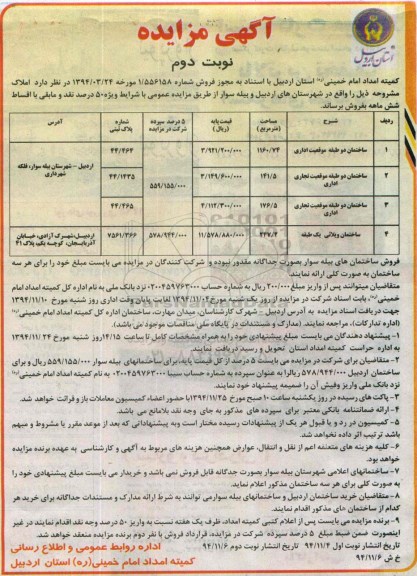 آگهی مزایده
نوبت دوم
استان اردبیل
کمیته امداد امام خمینی(ره) استان اردبیل با استناد به مجوز فروش شماره ۱/۵۵۶۱۵۸ مورخه ۱۳۹۴/۰۳/۲۴ در نظر دارد املاک
مشروحه ذیل را واقع در شهرستان های اردبیل و بیله سوار از طریق مزایده عمومی با شرایط ویژه ۵۰ درصد نقد و مابقی با اقساط
شش ماهه بفروش برساند.
ردیف شرح مساحت (مترمربع) قیمت پایه (ریال) ۵ درصد سپرده شرکت در مزایده شماره پلاک ثبتی آدرس
۱ ساختمان دو طبقه موقعیت اداری ۱۱۶۰/۷۴ ۳/۹۲۱/۲۰۰/۰۰۰ ۵۵۹/۱۵۵/۰۰۰ ۴۴/۴۶۴ اردبیل - شهرستان بیله سوار، فلکه شهرداری
۲ ساختمان دو طبقه موقعیت تجاری اداری ۱۴۱/۵ ۳/۱۴۹/۶۰۰/۰۰۰ ۴۴/۱۴۳۵
۳ ساختمان دو طبقه موقعیت تجاری اداری ۱۷۶/۵ ۴/۱۱۲/۳۰۰/۰۰۰ ۴۴/۴۶۵
۴ ساختمان ویلائی یک طبقه ۴۳۷/۴ ۱۱/۵۷۸/۸۸۰/۰۰۰ ۵۷۸/۹۴۴/۰۰۰ 7561/۳۶۶ اردبیل، شهرک آزادی، خیابان آذربایجان، کوچه یکم، پلاک ۴۱
فروش ساختمان های بیله سوار بصورت جداگانه مقدور نبوده و شرکت کنندگان در مزایده می بایست مبلغ خود را برای هر سه
ساختمان به صورت کلی ارائه نمایند.
متقاضیان میتوانند پس از واریز مبلغ ۲۰۰/۰۰۰ ریال به شماره حساب ۰۲۰۰۴۵۹۷۶۳۰۰۰ نزد بانک ملی به نام اداره کل کمیته امداد امام
خمینی(ره)، بابت اسناد شرکت در مزایده از روز یک شنبه مورخ ۱۳۹۴/۱۱/۰۴ لغایت پایان وقت اداری روز شنبه مورخ ۱۳۹۴/۱۱/۱۰
جهت دریافت اسناد مزایده به آدرس اردبیل - شهرک کارشناسان، میدان مهارت، ساختمان اداره کل کمیته امداد امام خمینی(ره)
(اداره تدارکات)، مراجعه نمایند. (مدارک و مستندات در پایگاه ملی مناقصات موجود می باشد).
۱- پیشنهاد دهندگان می بایست مبلغ پیشنهادی خود را به همراه مشخصات کامل تا ساعت ۱۴/۱۵ روز شنبه مورخ ۱۳۹۴/۱۱/۲۴
به اداره حراست کمیته امداد استان تحویل و رسید دریافت نمایند.
۲- متقاضیان برای شرکت در مزایده می بایست ۵ درصد از کل قیمت پایه، برای ساختمانهای بیله سوار ۵۵۹/۱۵۵/۰۰۰ ریال و برای
ساختمان اردبیل ۵۷۸/۹۴۴/۰۰۰ ریال را به عنوان سپرده به شماره حساب سیبا ۰۲۰۰۴۵۹۷۶۳۰۰۰ به نام کمیته امداد امام خمینی(ره)
نزد بانک ملی واریز وفیش آن را ضمیمه پیشنهاد خود نمایند.
۳- پاکت های رسیده در روز یکشنبه ساعت ۱۰ صبح مورخ ۱۳۹۴/۱۱/۲۵ با حضور اعضاء کمیسیون معاملات باز و قرائت خواهد شد.
۴- ارائه ضمانتنامه بانکی معتبر برای سپرده های مذکور به جای وجه نقد بلامانع می باشد.
۵- کمیسیون در رد و یا قبول هر یک از پیشنهادات رسیده مختار است وبه پیشنهاداتی که بعد از موعد مقرر یا مشروط و مبهم
باشد ترتیب اثر داده نخواهد شد.
۶- کلیه هزینه های متعلقه اعم از نقل و انتقال، عوارض همچنین هزینه های مربوط به آگهی و کارشناسی به عهده برنده مزایده
خواهد بود.
۷- ساختمانهای اعلامی شهرستان بیله سوار بصورت جداگانه قابل فروش نمی باشد و خریدار می بایست مبلغ پیشنهادی خود را
به صورت کلی برای هر سه ساختمان مذکور اعلام نماید.
۸- متقاضیان خرید ساختمان اردبیل و ساختمانهای بیله سوار می توانند به شرط ارائه مدارک و مستندات جداگانه برای خرید هر
کدام از ساختمان های مذکور اقدام نمایند.
۹- برنده مزایده می بایست پس از اعلام کتبی کمیته امداد، ظرف یک هفته نسبت به واریز ۵۰ درصد وجه نقد اقدام نمایند در غیر
اینصورت ضمن ضبط مبلغ ۵ درصد سپرده شرکت در مزایده، قرارداد فروش با نفر دوم برنده مزایده منعقد خواهد شد.
تاریخ انتشار نوبت اول ۹۴/۱۱/۴ تاریخ انتشار نوبت دوم ۹۴/۱۱/۶
خ ش ۹۴/۱۱/۶
اداره روابط عمومی و اطلاع رسانی
کمیته امداد امام خمینی(ره) استان اردبیل